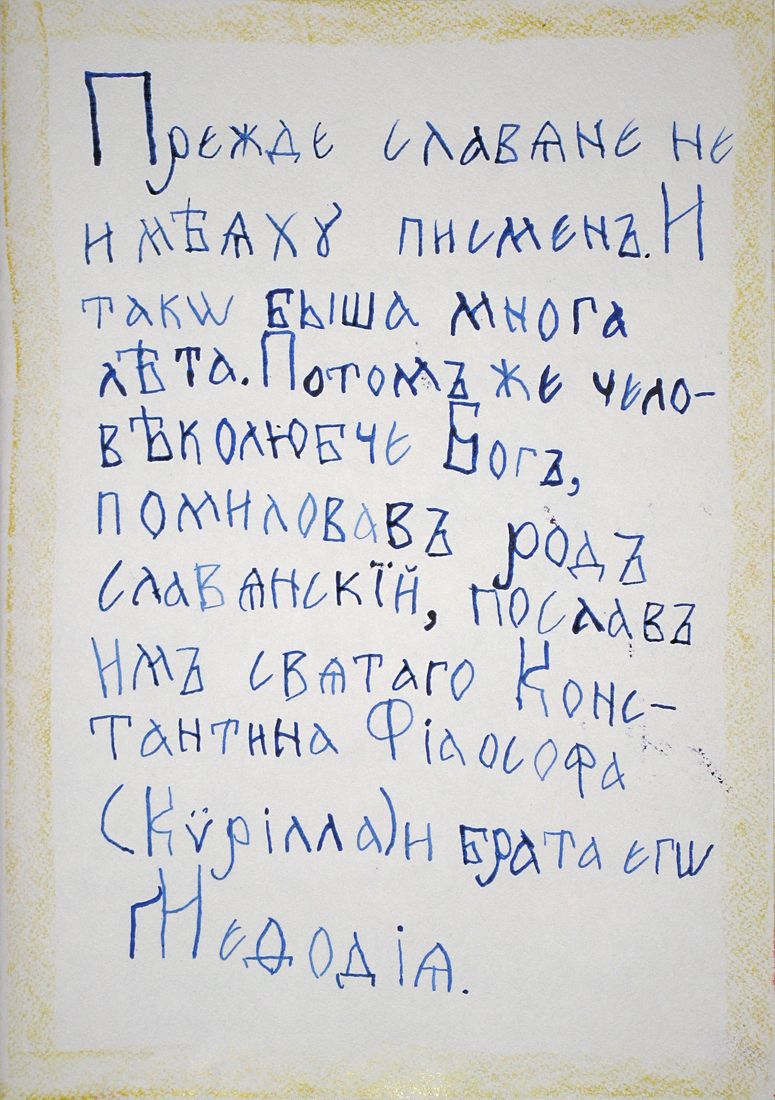 Прежде славѧне не
имѣѧхꙋ писменъ. И
такѡ быша многа
лѣта. Потомъ же чело-
вѣколюбче Богъ,
помиловавъ родъ
славѧнскїй, пославъ
имъ свѧтаго Конс-
тантина Філософа
(Кѷрілла) и брата егѡ
Меѳодіѧ.